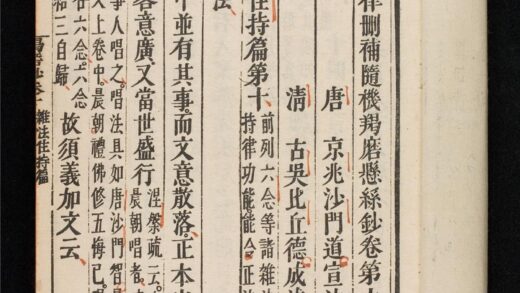 律刪補隨機羯磨懸絲鈔卷第十
唐　京兆沙門道宣
清　古吳比丘德成
住持篇第十
前列六念等諸雜法
持律功能能令正法
法
中並有其事而文意散落正本
容意廣又當世盛行
涅槃疏云
晨朝唱者
事人唱之唱法具如唐沙門智昇
人上卷中晨朝禮佛修五悔已唱
在六念六念
和三自歸
故須義加文云
雜法住持篇